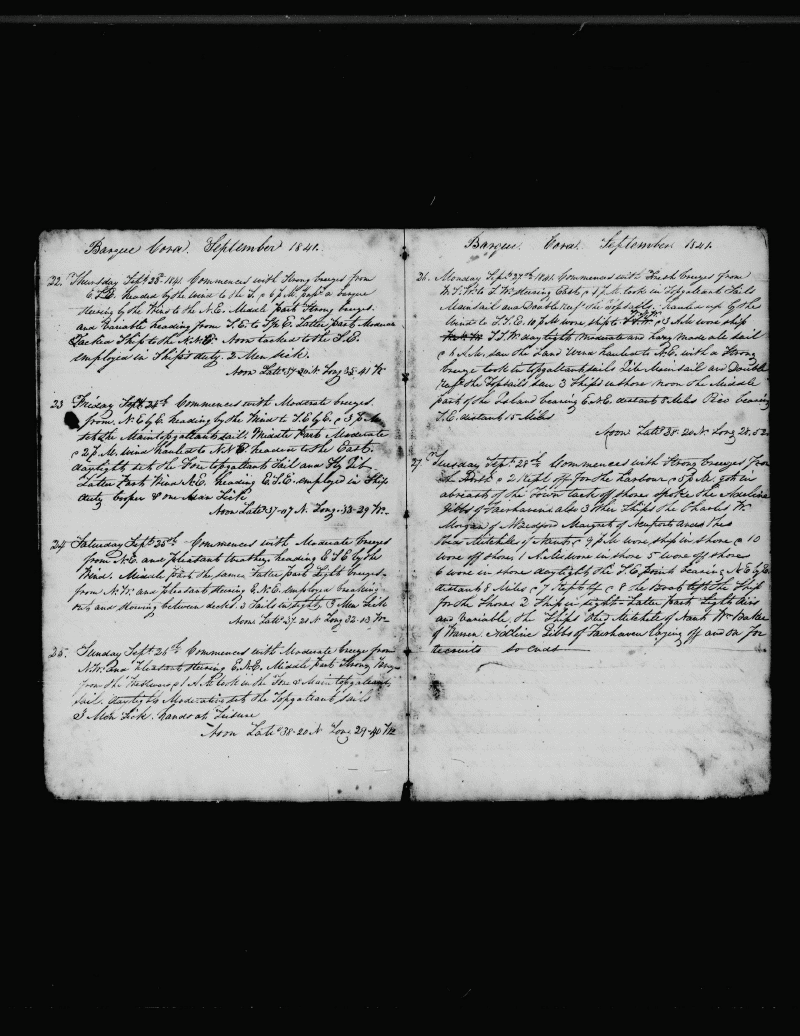 Barque Cora. September 1841.
22. Thursday Sept. 23d 1841. Commences with Strong breezes from
E.S.E. headed by the wind to the S. @ 6 P.M. pass a barque
steering by the Wind to the N.E. Middle Part Strong breezes
and Variable heading from S.E. to E. Latter part Moderate
Tacked Ship to the N.N.E. Noon tacked to the S.E.
employed in Ships duty. 2 Men sick.
Noon Latd 37-20 N. Long 35-41 W.
23 Friday Sept. 24th Commences with Moderate breezes
from N.E by E. heading by the Wind to S.E by E. @ 3 P.M.
set the Main topgallant sail. Middle Part Moderate
@ 2 P.M. wind hauled to N.N.E. headed to the East.
daylight set the Fore topgallant Sail and Fly Jib
Latter Part Wind N.E. heading E.S.E. employed in Ship
duty Cooper & one Man Sick
Noon Latd 37-17 N. Long. 33-29 W.
24 Saturday Sept. 25th Commences with Moderate breezes
from N.E. and Pleasant Weather heading E.S.E by the
Wind. Middle Part the same Latter Part Light breezes
from N.W. and Pleasant steering E.N.E. employed breaking
out and stowing between decks. 2 Sails in sight 3 Men Sick
Noon Latd 37. 21 N Long 32-13 W.
25. Sunday Sept. 26th Commences with Moderate breeze from
N.W. and Pleasant steering E.N.E. Middle part Strong breezes
from the Westward @ 1 A.M. took in the Fore & Main topgallant
sail. daylight Moderate set the Topgallant sails
3 Men Sick. hands at Leisure
Noon Latd 38-20 N Long 29-40 W
Barque. Cora. September 1841.
26. Monday Sept. 27th 1841. Commences with Fresh breezes from
W.S.W. to S.W. steering East. @ P.M. took in Topgallant Sails
Mainsail and Double Reef the topsails. hauled up by the
Wind to S.S.E. 10 P.M. wore ship to @ 3 A.M. wore ship
S.S.W. daylight Moderate and hazy made all sail
@ A.M. saw the Land Wind hauled to N.E. with a Strong
breeze took in topgallant sails Jib Mainsail and Double
Reef the Topsails saw 3 Ships in shore Noon the Middle
part of the Island bearing E.N.E. distant 8 Miles Pico bearing
S.E. distant 15 Miles
Noon Latd 38-20 N. Long 28.52
27 Tuesday Sept. 28th Commences with Strong breezes from
the North @ 2 kept off for the Harbour @ 5 P.M. got in
abreast of the Town tack off shore spoke the Adeline
Gibbs of Fairhaven also 3 other Ships the Charles W
Morgan of N Bedford Margaret of Newport and
Mitchell of Nantt. @ 9 P.M. wore ship in shore @ 10
wore off shore 1 A.M. wore in shore 5 wore off shore
6 wore in shore daylight the S.E. point bearing N.E by E
distant 8 Miles @ 7 kept off @ 8 the Boat left the Ship
for the Shore 2 Ships in sight Latter part Light Airs
and Variable the Ships Obed Mitchell of Nantt Wm Baker
of Warren Adline Gibbs of Fairhaven laying off and on for
recruits So ends